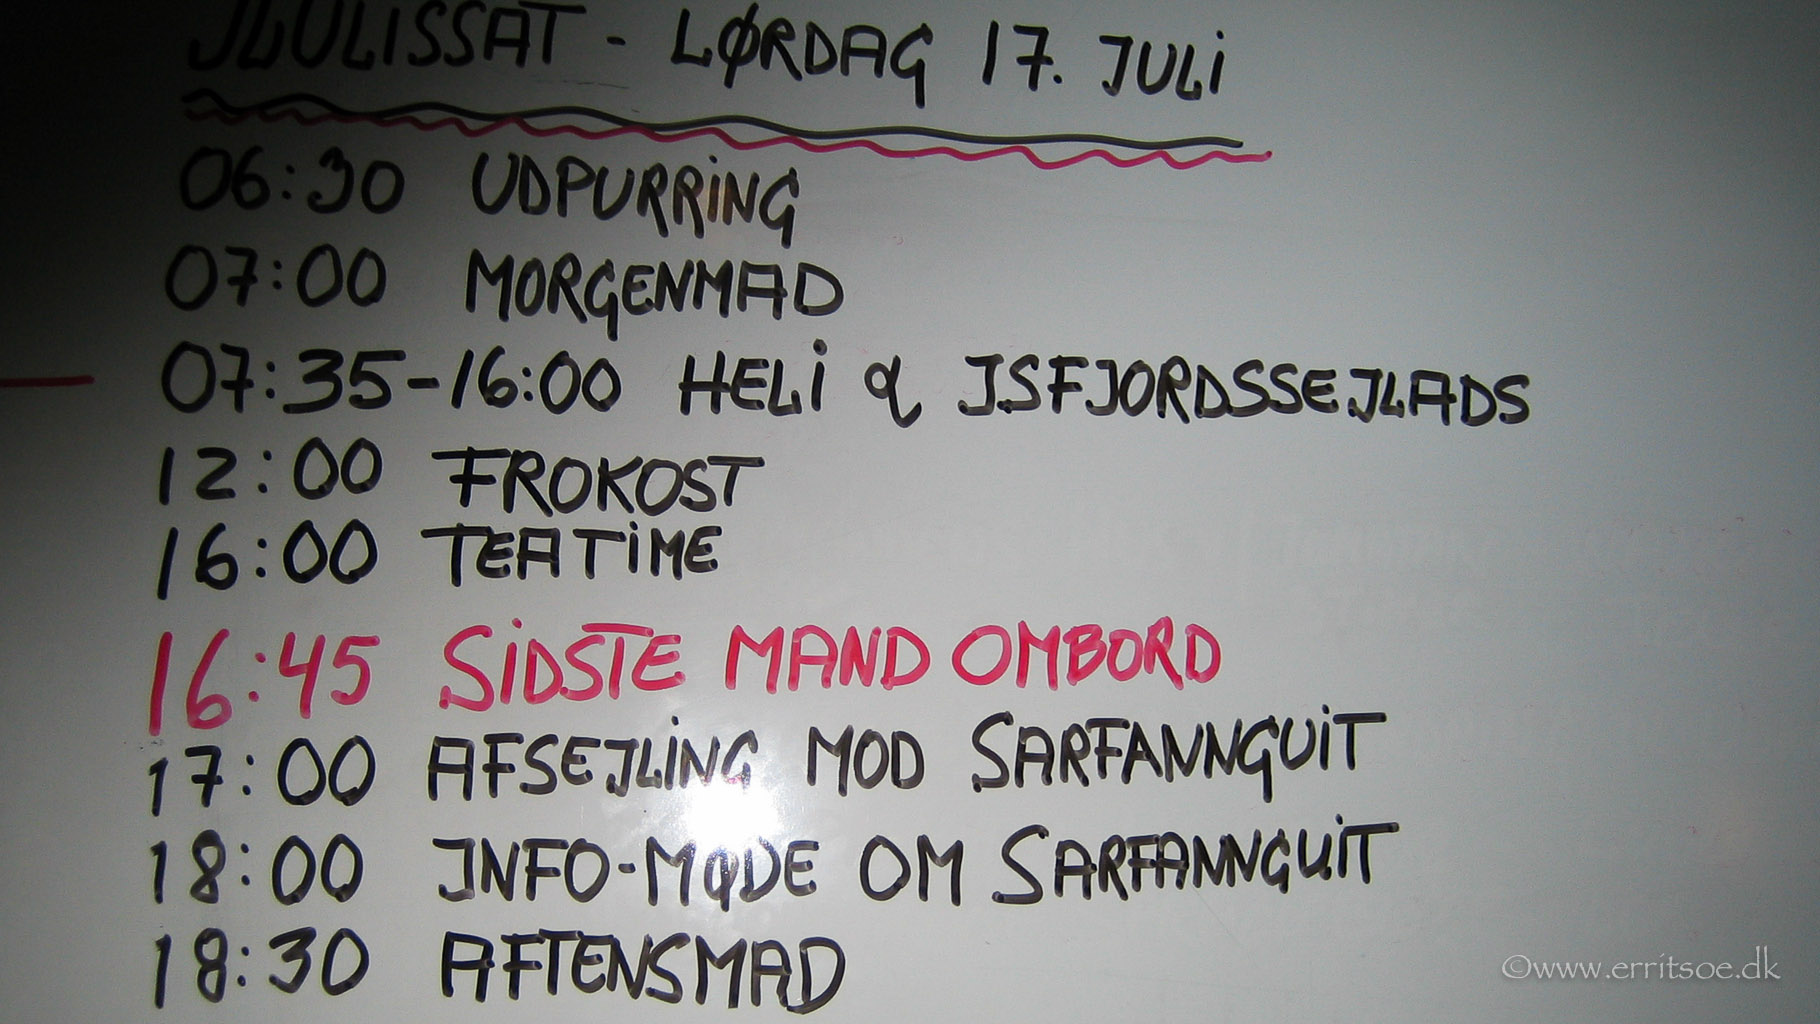 ILULISSAT - LØRDAG 17. JULI
06:30 UDPURRING
07:00 MORGENMAD
07:35-16:00 HELI & ISFJORDSSEJLADS
12:00 FROKOST
16:00 TEATIME
16:45 SIDSTE MAND OMBORD
17:00 AFSEJLING MOD SARFANNGUIT
18:00 INFO-MØDE OM SARFANNGUIT
18:30 AFTENSMAD
©www.erritsoe.dk